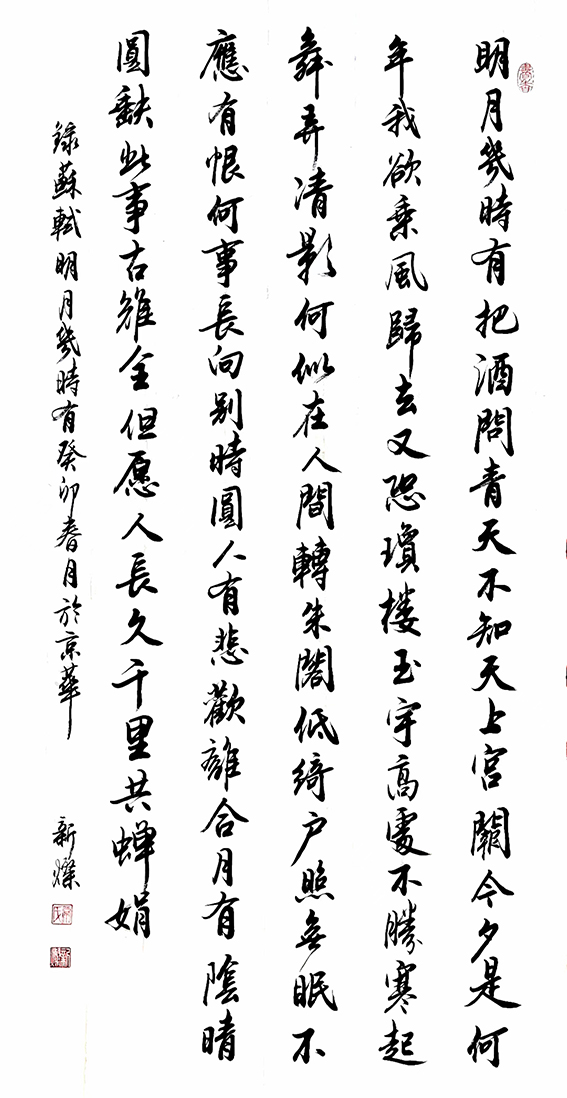 明月幾時有把酒問青天不知天上宮闕今夕是何
年我欲乘風歸去又恐瓊楼玉宇高處不勝寒起
舞弄清影何似在人間轉朱閣低綺户照無眠不
應有恨何事長向别時圓人有悲歡離合月有陰晴
圓缺此事古難全但愿人長久千里共蝉娟
録蘇軾明月幾時有癸卯春月於京華
新燦